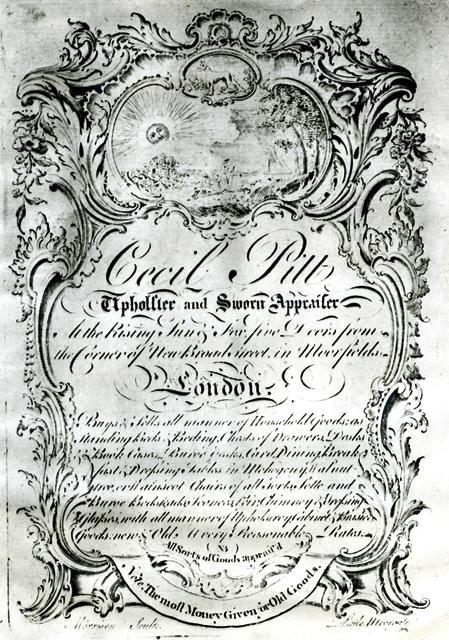 Cecil Pitt
Upholster and Sworn Appraiser
At the Rising Sun & Fox, five Doors from
the Corner of New Broad street, in Moorfields
London.
Buys & Sells all manner of Household Goods; as
standing Beds & Bedding, Chests of Drawers, Desks
& Book Cases, Buroe Desks, Card, Dining, Break=
fast & Dressing Tables in Mohogony, Walnut=
tree, or Wainscot Chairs of all Sorts, Sette and
Buroe Bedsteads, Sconces, Pier, Chimney & Dressing
Glasses, with all manner of Upholstery, Cabinet &
Goods, new & Old. At very Reasonable Rates.
NB
All Sorts of Goods apprais'd
Note, The most Money Given for Old Goods.
Morrison Sculp.